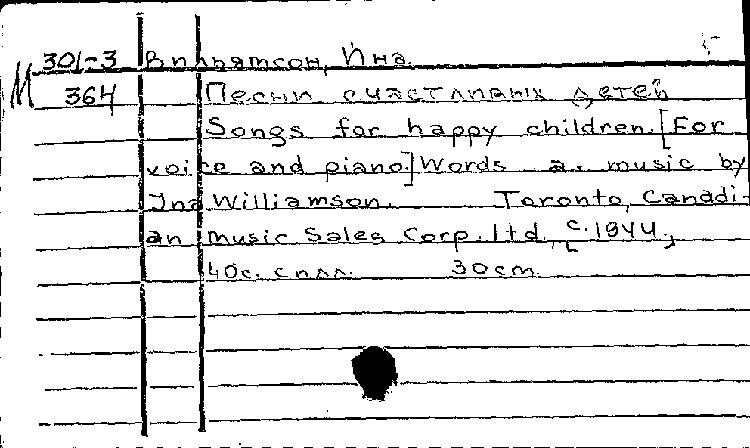 301-3 Вильямсон, Ина.
М 364 Песни счастливых детей
Songs for happy children. [For
voice and piano] Words a. music by
Ina Williamson. Toronto, Canadi-
an music Sales Corp. ltd, c. 1944,
40с. с илл. 30cm.